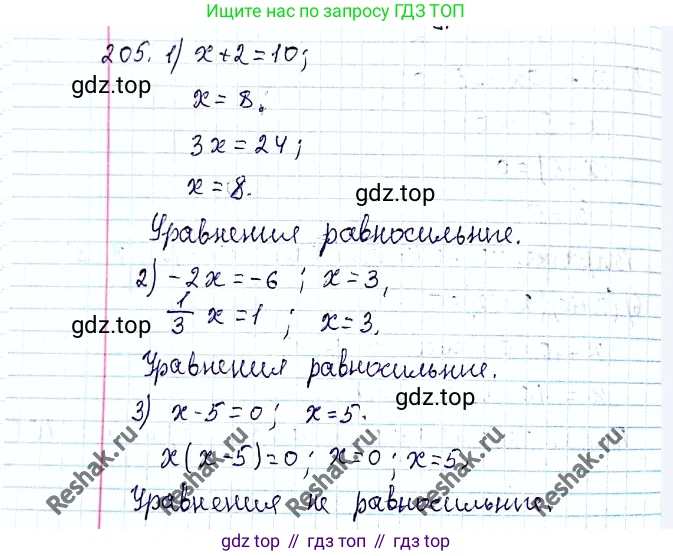 Ищите нас по запросу ГДЗ ТОП
205. 1) x+2=10;
gdz.top
x=8.
3x=24;
x=8.
gdz.top
Уравнения равносильные.
2) -2x=-6 ; x=3,
gdz.top
1/3 x=1 ; x=3,
Уравнения равносильные.
gdz.top
3) x-5=0; x=5.
x(x-5)=0; x=0; x=5,
Уравнения не равносильные.
Reshak.ru
Reshak.ru
Reshak.ru
gdz.top // гдз.топ // гдз топ // gdz top